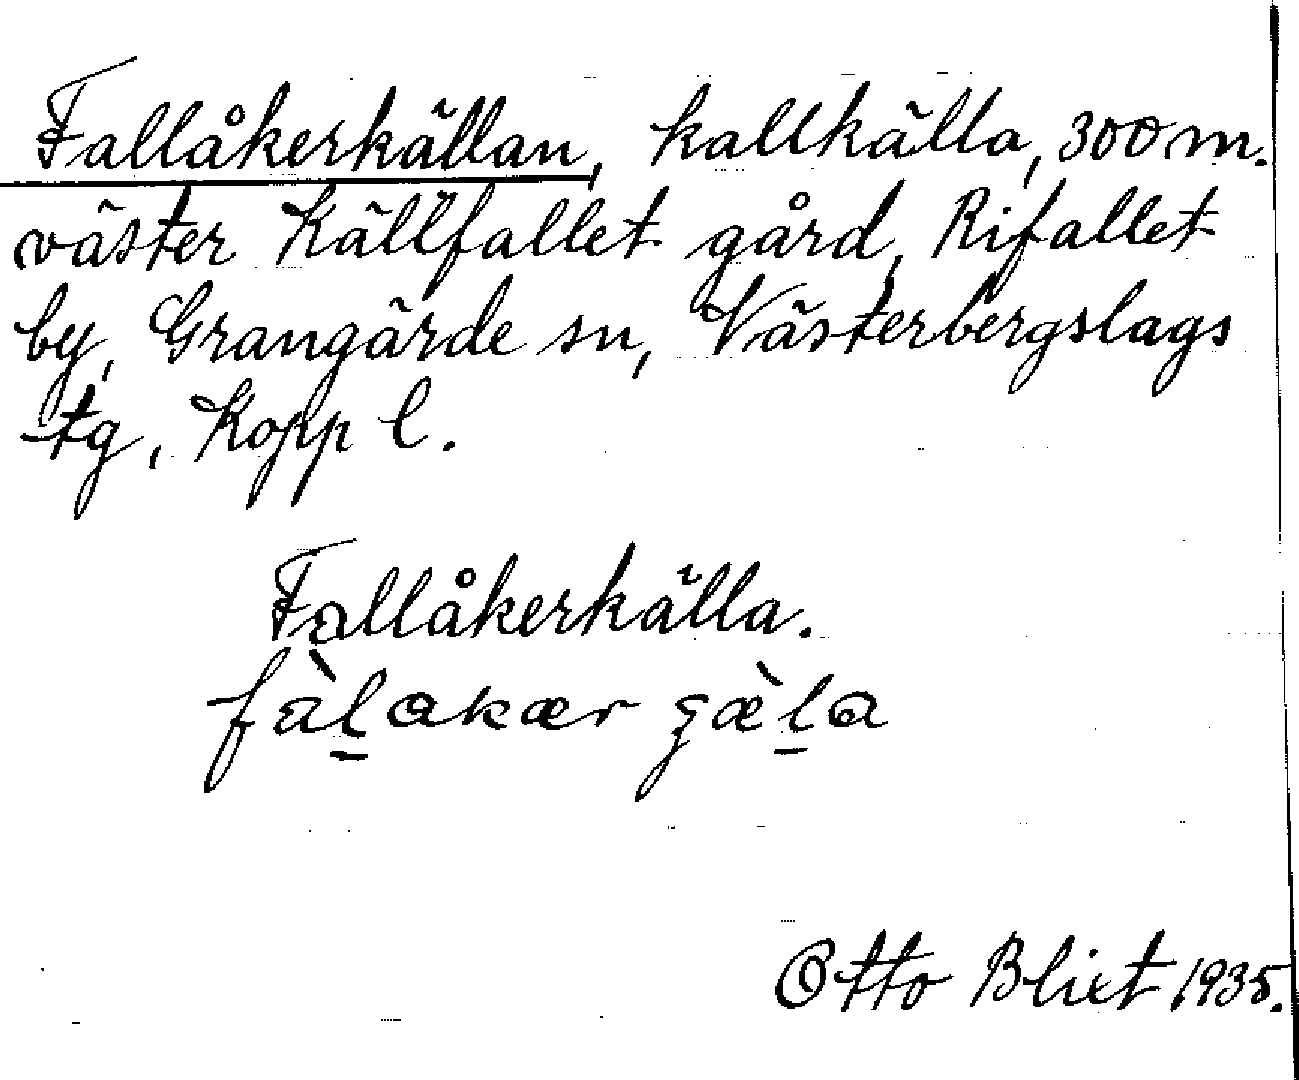 Fallåkerkällan, kallkälla, 300 m.
väster Källfallet gård, Rifallet
by, Grangärde sn, Västerbergslags
tg, Kopp l.
Fallåkerkälla.
fàlakær
Otto Blixt 1935.